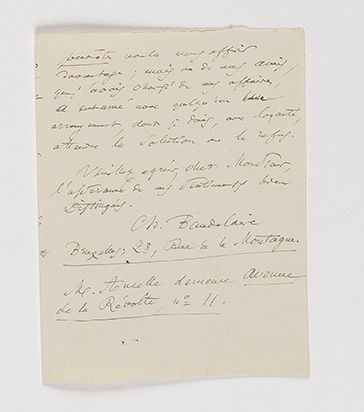 peut-être voulu vous offrir
davantage ; mais un de mes amis,
que j'avais chargé de mes affaires,
a entamé avec quelqu'un
arrangement dont je dois, avec loyauté,
attendre la solution ou le refus.
Veuillez agréer, cher Monsieur,
l'assurance de mes sentiments bien
distingués.
Ch. Baudelaire
Bruxelles, 28, Rue de la Montagne.
M. Ancelle demeure avenue
de la Révolte, nº 11.